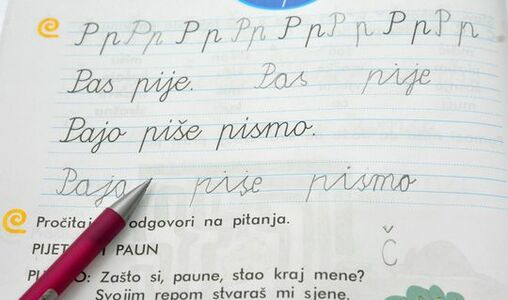 P p P p P p P p P p P p P p P p
Pas pije. Pas pije
Pajo piše pismo.
Pajo piše pismo
Pročitaj odgovori na pitanja.
I PAUN
Č
Zašto si, paune, stao kraj mene?
Svojim repom stvaraš mi sjene.